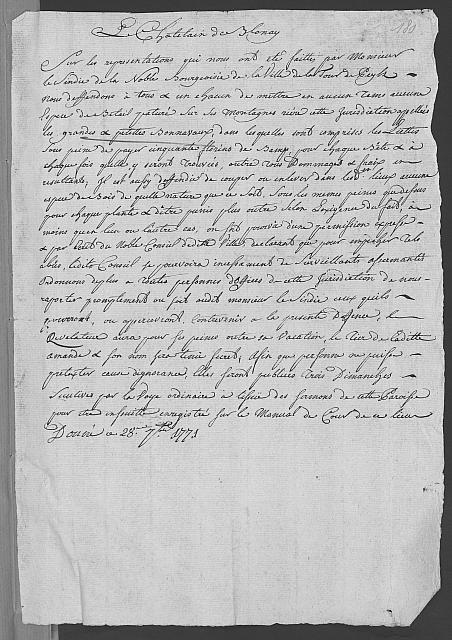 180
Le Chatelain de Blonay
Sur les representations qui nous ont eté faittes par Monsieur
le Sindic de la Noble Bourgeoisie de la Ville de la Tour de Peylz
nous deffendons à tous & un chacun de mettre en aucun tems aucune
espece de Betail paturé sur ses Montagnes rière cette Juridiction appellées
les grandes & petittes Bonnavaux, dans lesquelles sont comprises les
sous peine de payer cinquante florins de Bamp, pour chaque Bête & à
chaque fois quelle y seront trouvées, outre tous Dommages & fraix en
resultants; Il est aussy deffendu de couper ou enlever dans les dits lieux aucune
espece de Bois de quelle nature que ce soit, sous les memes peines que dessus
pour chaque plante & d'être punis plus outre selon l'exigence du fait, à
moins qu'en l'un ou l'autre cas, on soit pourvu d'une permission expresse
& par écrit du Noble Conseil de ditte Ville, declarant que pour empêcher tels
abus, ledit Conseil se pourvoira incessamment de surveillants assermentés
Ordonnons de plus à toutes personnes de cette Juridiction de nous
rapporter promptement ou soit audit monsieur le Sindic ceux qu'ils
trouveront, ou appercevront, contrevenir à la presente Defence, le
Revelateur aura pour ses peines outre sa Vacation, le Tier de laditte
amande & son nom sera tenu secret, afin que personne ne puisse
pretexter cause d'ignorance, Elles seront publiées trois Dimanches
Secutives par la voye ordinaire à l'issue des sermons de cette Paroisse
pour être ensuitte enregistré sur le Manual de Cour de ce lieu
Donné ce 28e 7bre 1771